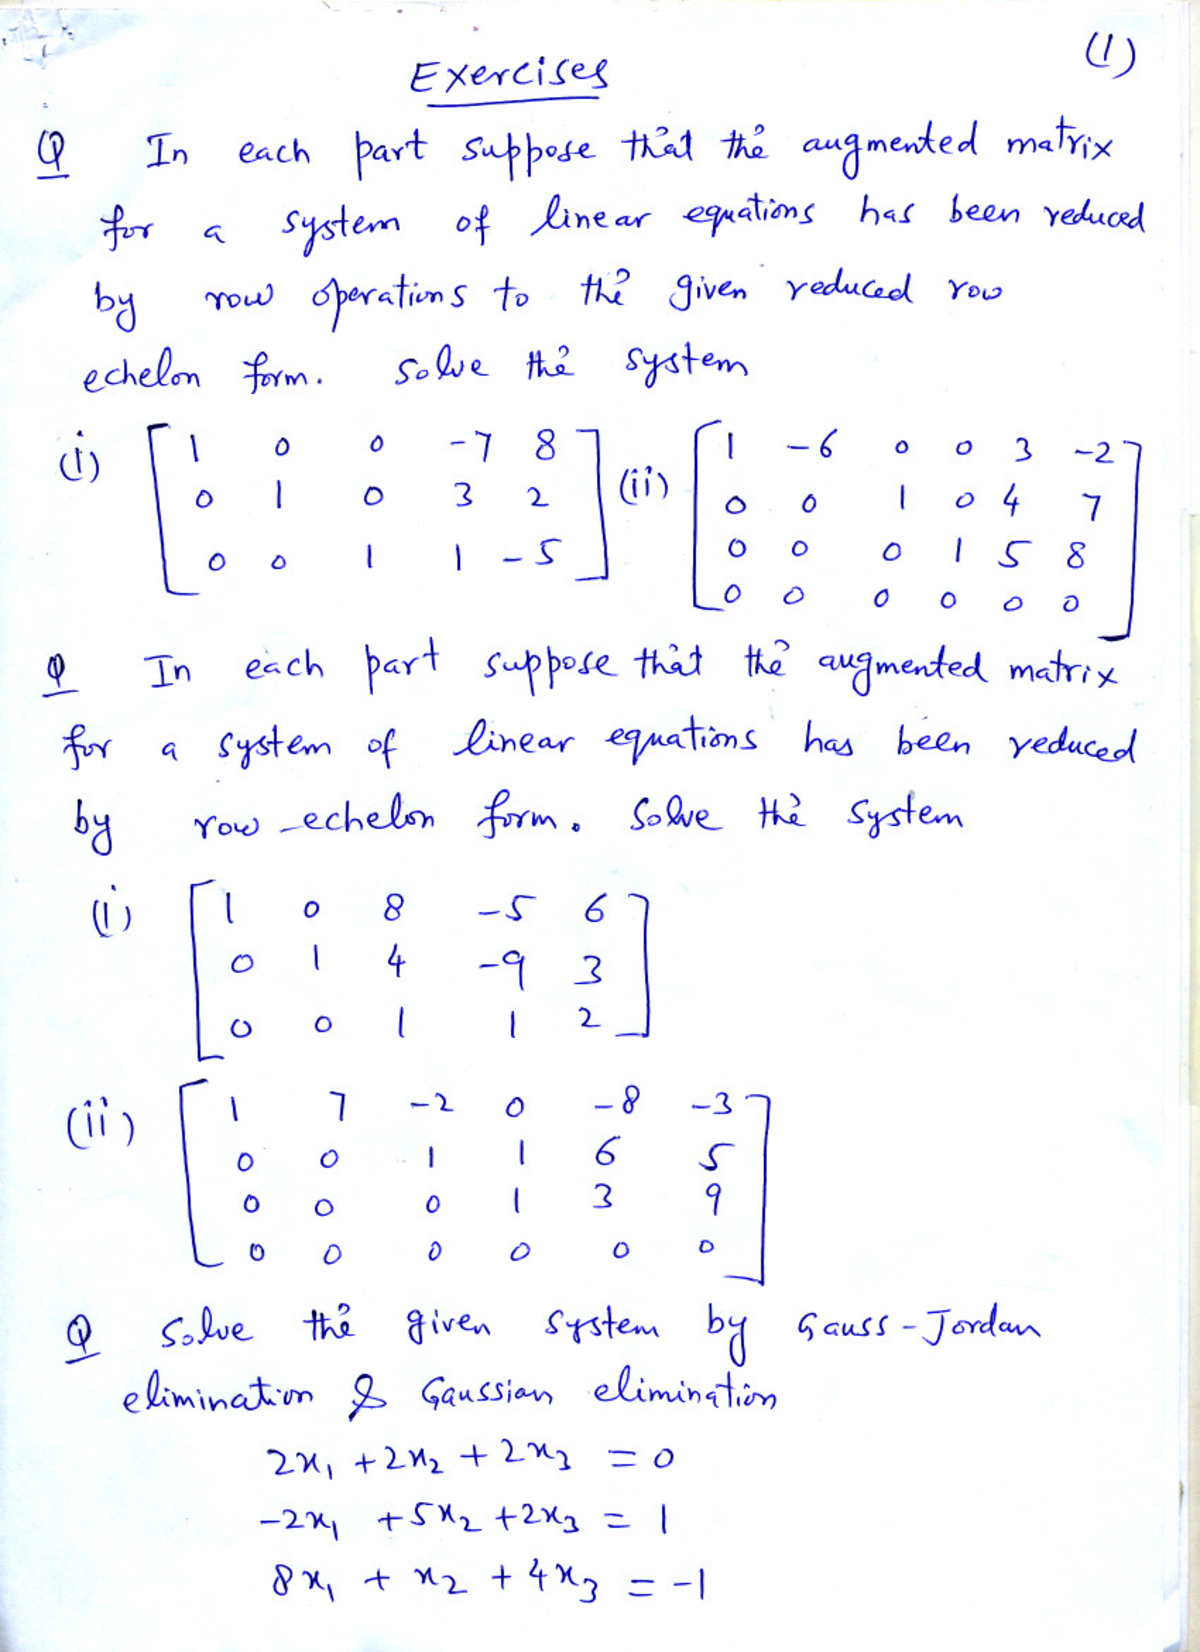 (1)
Exercises
Q In each part suppose that the augmented matrix
for a system of linear equations has been reduced
by row operations to the given reduced row
echelon form. Solve the system
(i) [1 0 0 -7 8 (ii) [1 -6 0 0 3 -2
0 1 0 3 2 0 0 1 0 4 7
0 0 1 1 -5] 0 0 0 1 5 8
0 0 0 0 0 0]
Q In each part suppose that the augmented matrix
for a system of linear equations has been reduced
by row-echelon form. Solve the system
(i) [1 0 8 -5 6
0 1 4 -9 3
0 0 1 1 2]
(ii) [1 7 -2 0 -8 -3
0 0 1 1 6 5
0 0 0 1 3 9
0 0 0 0 0 0]
Q Solve the given system by Gauss-Jordan
elimination & Gaussian elimination
2x₁ + 2x₂ + 2x₃ = 0
-2x₁ + 5x₂ + 2x₃ = 1
8x₁ + x₂ + 4x₃ = -1